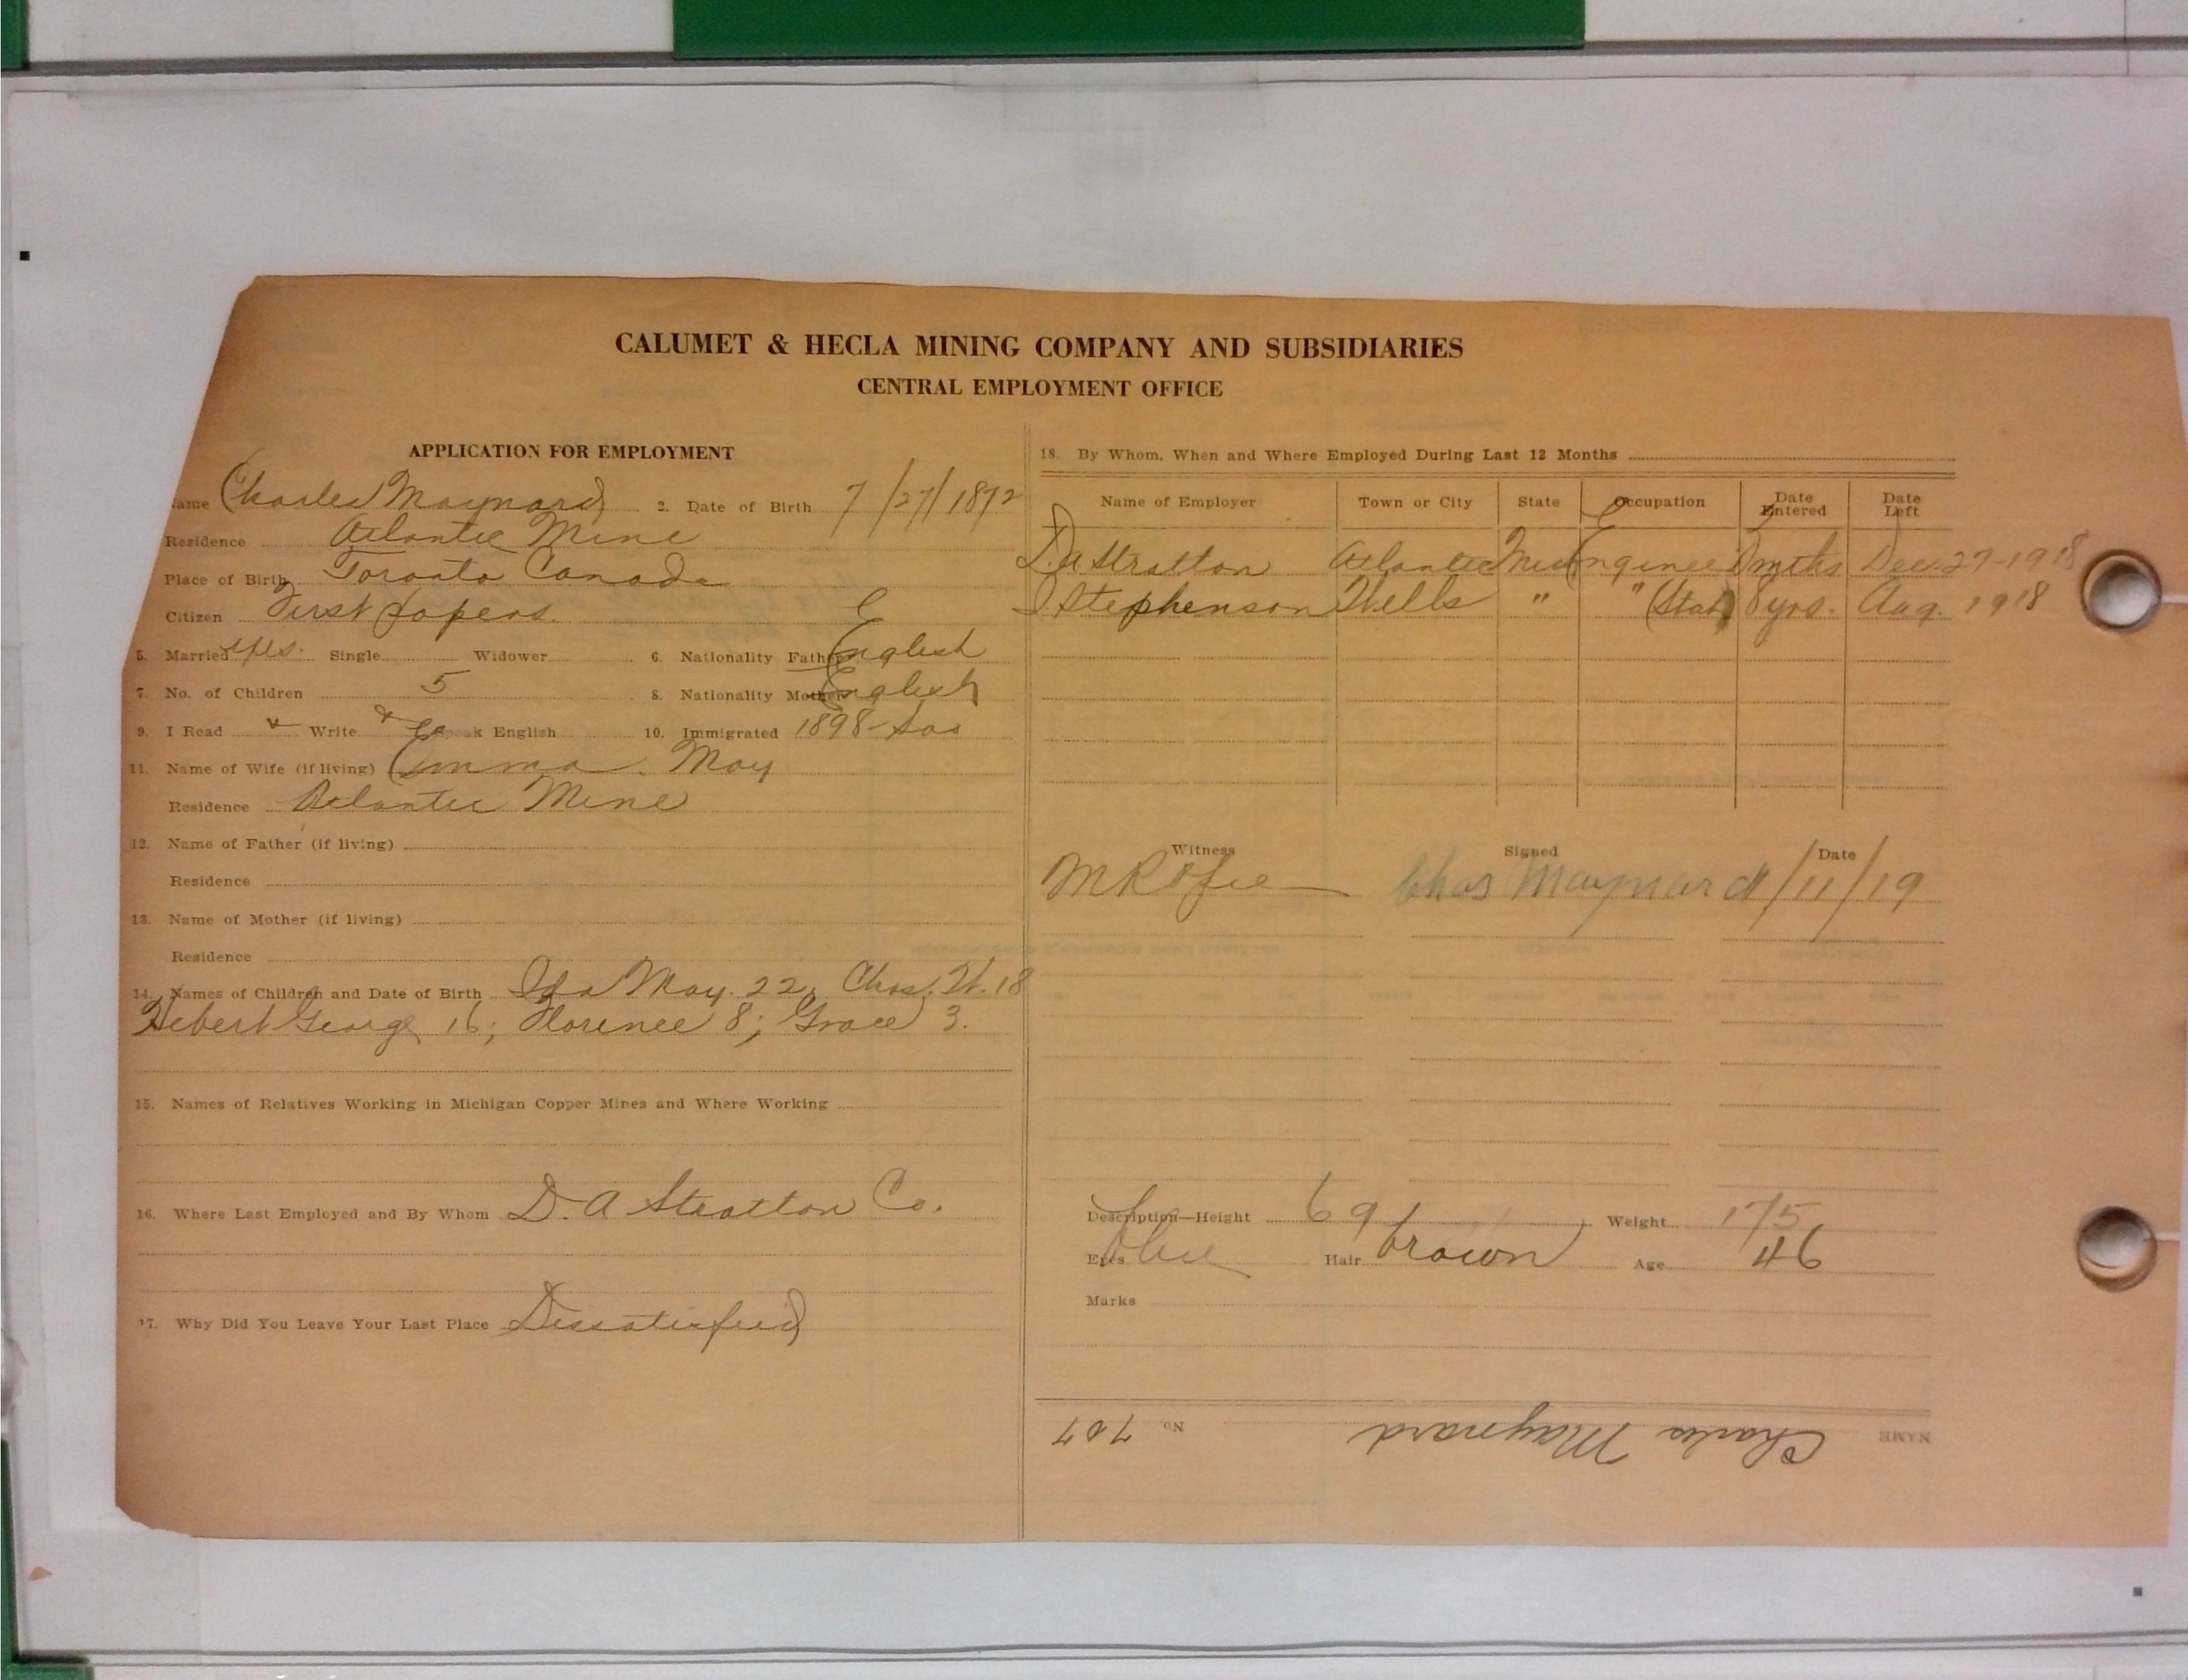 CALUMET & HECLA MINING COMPANY AND SUBSIDIARIES
CENTRAL EMPLOYMENT OFFICE
APPLICATION FOR EMPLOYMENT
ame Charles Maynard 2. Date of Birth 7/27/1872
Residence Atlantic Mine
Place of Birth Toronto Canada
Citizen First papers. E
5. Married yes. Single Widower 6. Nationality Father English
7. No. of Children 5 8. Nationality Mother English
9. I Read Write Speak English 10. Immigrated 1898-Soo
11. Name of Wife (if living) Emma. May
Residence Atlantic Mine
12. Name of Father (if living)
Residence
13. Name of Mother (if living)
Residence
14. Names of Children and Date of Birth Ida May. 22, Chas. H. 18
Hebert George 16; Florence 8; Grace 3.
15. Names of Relatives Working in Michigan Copper Mines and Where Working
16. Where Last Employed and By Whom D. A Stratton Co.
17. Why Did You Leave Your Last Place Dissatisfied
18. By Whom, When and Where Employed During Last 12 Months
Name of Employer Town or City State Occupation Date Entered Date Left
D.A Stratton Atlantic Mich Engineer mths Dec. 27-1918
I Stephenson Wells " " (Stat) 8 yrs. Aug. 1918
Witness Signed Date
Chas Maynard 1/11/19
Description—Height 69 Weight 175
Eyes blue Hair brown Age 46
Marks
NAME Charles Maynard No. 707